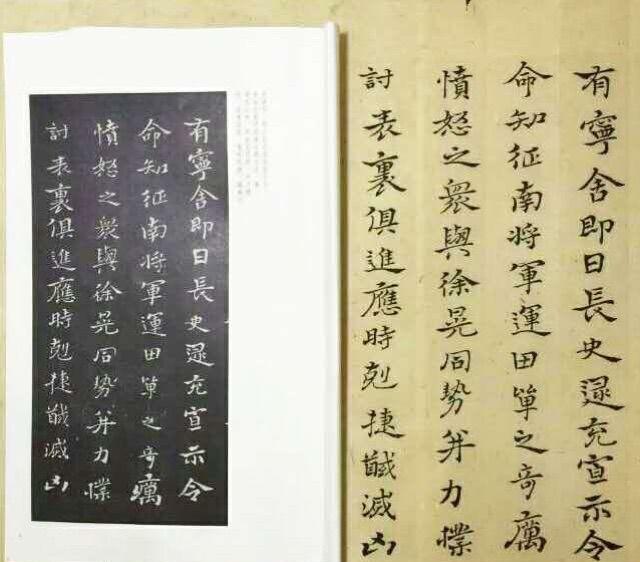 有寧舍即日長史逯充宣示令
命知征南將軍運田單之奇厲
憤怒之衆與徐晃同勢并力撲
討表裏俱進應時剋捷馘滅凶
有寧舍即日長史逯充宣示令
命知征南將軍運田單之奇厲
憤怒之衆與徐晃同勢并力撲
討表裏俱進應時剋捷馘滅凶